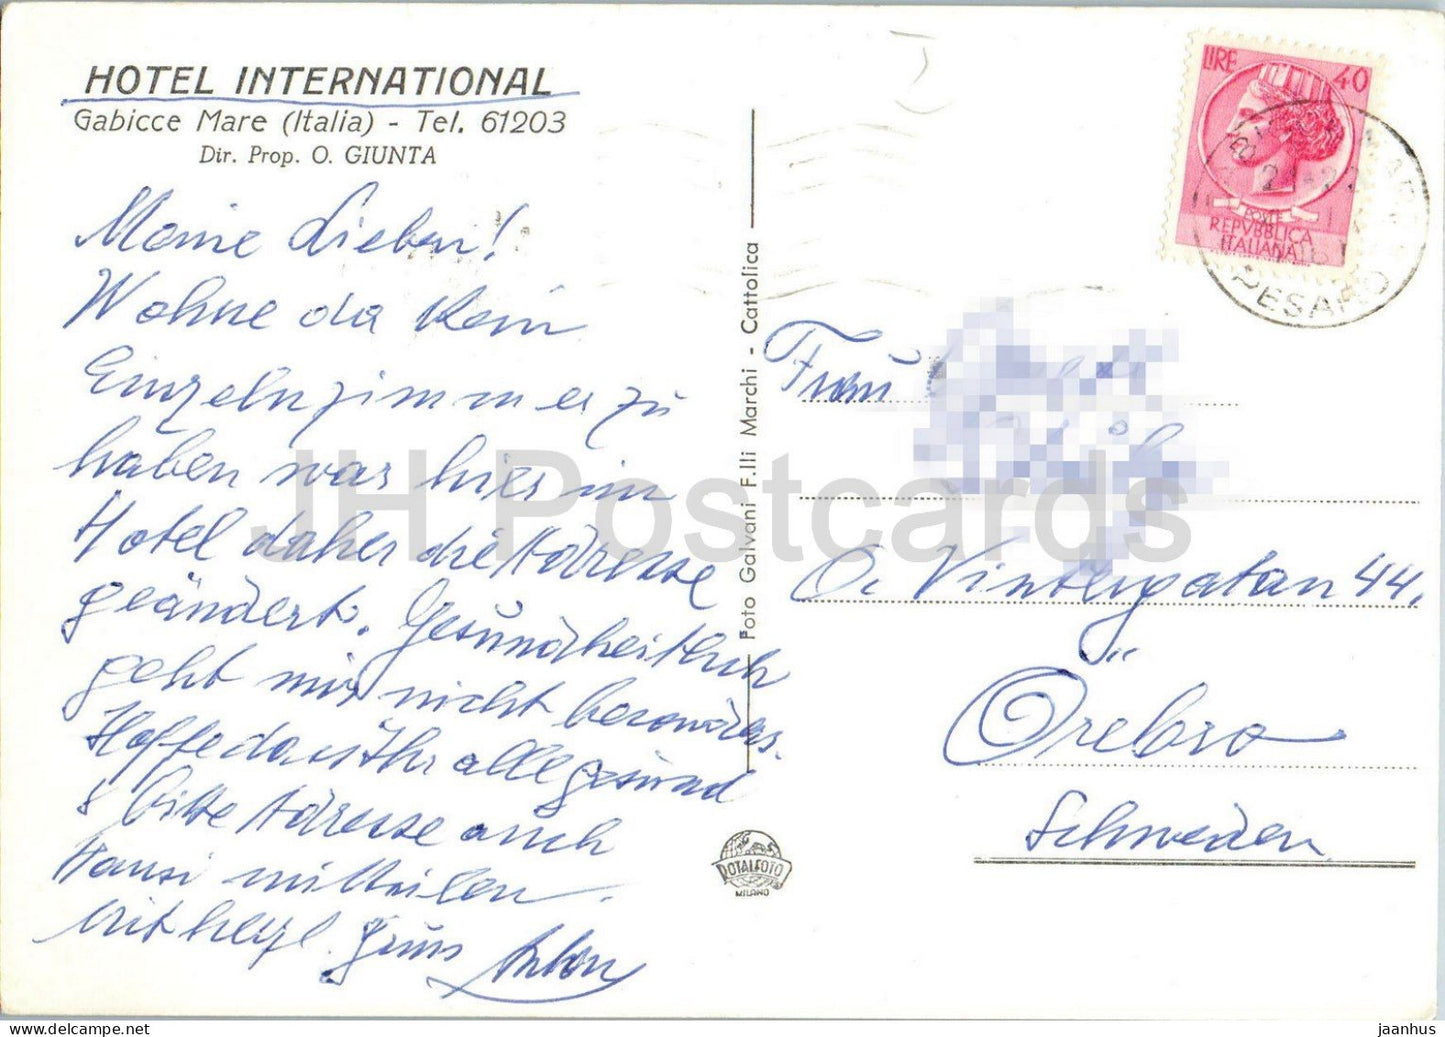 HOTEL INTERNATIONAL
Gabicce Mare (Italia) - Tel. 61203
Dir. Prop. O. GIUNTA
Meine Lieben!
Wohne da kein
Einzelnzimmer zu
haben war hier im
Hotel daher die Adresse
geändert. Gesundheitlich
geht mir nicht besonders.
Hoffe dass Ihr alle gesund
& bitte Adresse auch
Hansi mitteilen.
Mit herzl. Gruss Anton
Foto Galvani F.lli Marchi - Cattolica
ROTALFOTO
MILANO
LIRE 40
POSTE
REPVBBLICA
ITALIANA
PESARO
Frau
Ö. Vintergatan 44.
Örebro
Schweden
JH Postcards
jaanhus